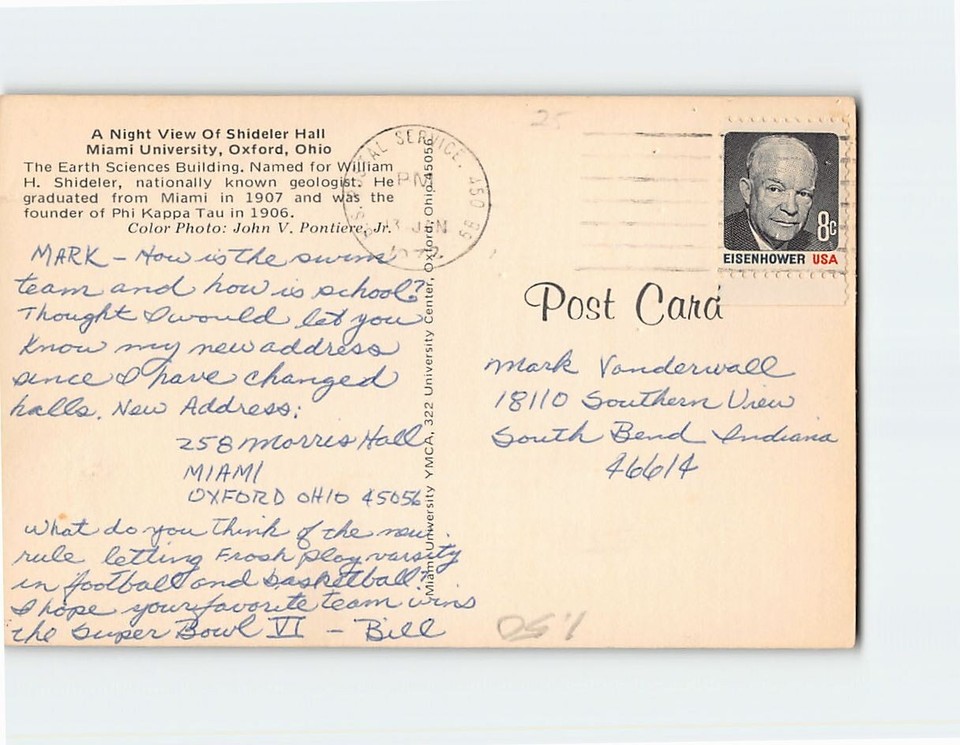 A Night View Of Shideler Hall
Miami University, Oxford, Ohio
The Earth Sciences Building. Named for William
H. Shideler, nationally known geologist. He
graduated from Miami in 1907 and was the
founder of Phi Kappa Tau in 1906.
Color Photo: John V. Pontiere, Jr.
MARK - How is the swim
team and how is school?
Thought I would let you
know my new address
since I have changed
halls. New Address:
258 Morris Hall
MIAMI
OXFORD OHIO 45056
What do you think of the new
rule letting Frosh play varsity
in football and basketball?
I hope your favorite team wins
the Super Bowl VI - Bill
Miami University YMCA, 322 University Center, Oxford, Ohio 45056
U.S. POSTAL SERVICE, 450
PM
13 JAN
1972
25
8c
EISENHOWER USA
Post Card
Mark Vanderwall
18110 Southern View
South Bend Indiana
46614
1.50